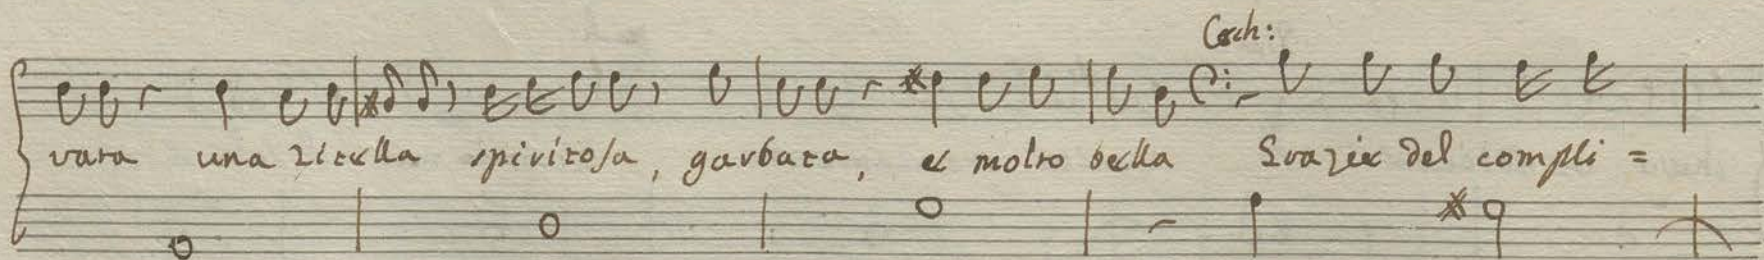 Cech:
vata una zitella spiritosa, garbata, e molto bella Grazie del compli=